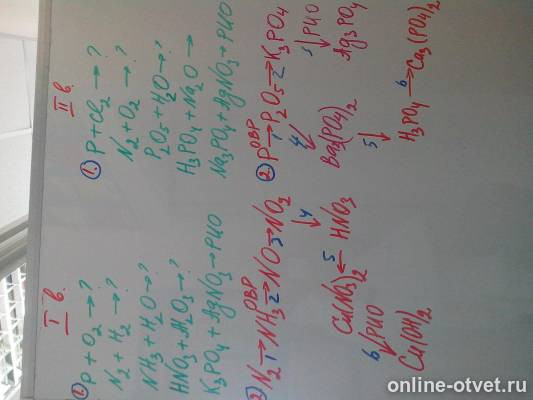 I в.
1. P + O2 → ?
N2 + H2 → ?
NH3 + H2O → ?
HNO3 + Al2O3 → ?
K3PO4 + AgNO3 → РИО
2) N2 →1 NH3 →2 ОВР NO →3 NO2
↓4
Cu(NO3)2 ←5 HNO3
6↓ РИО
Cu(OH)2
II в.
1. P + Cl2 → ?
N2 + O2 → ?
P2O5 + H2O → ?
H3PO4 + Na2O →
Na3PO4 + AgNO3 + РИО
2. P → ОВР P2O5 →2 K3PO4
4 ↓ 3 ↓ РИО
Ba3(PO4)2 Ag3PO4
5 ↓
H3PO4 →6 Ca3(PO4)2
online-otvet.ru